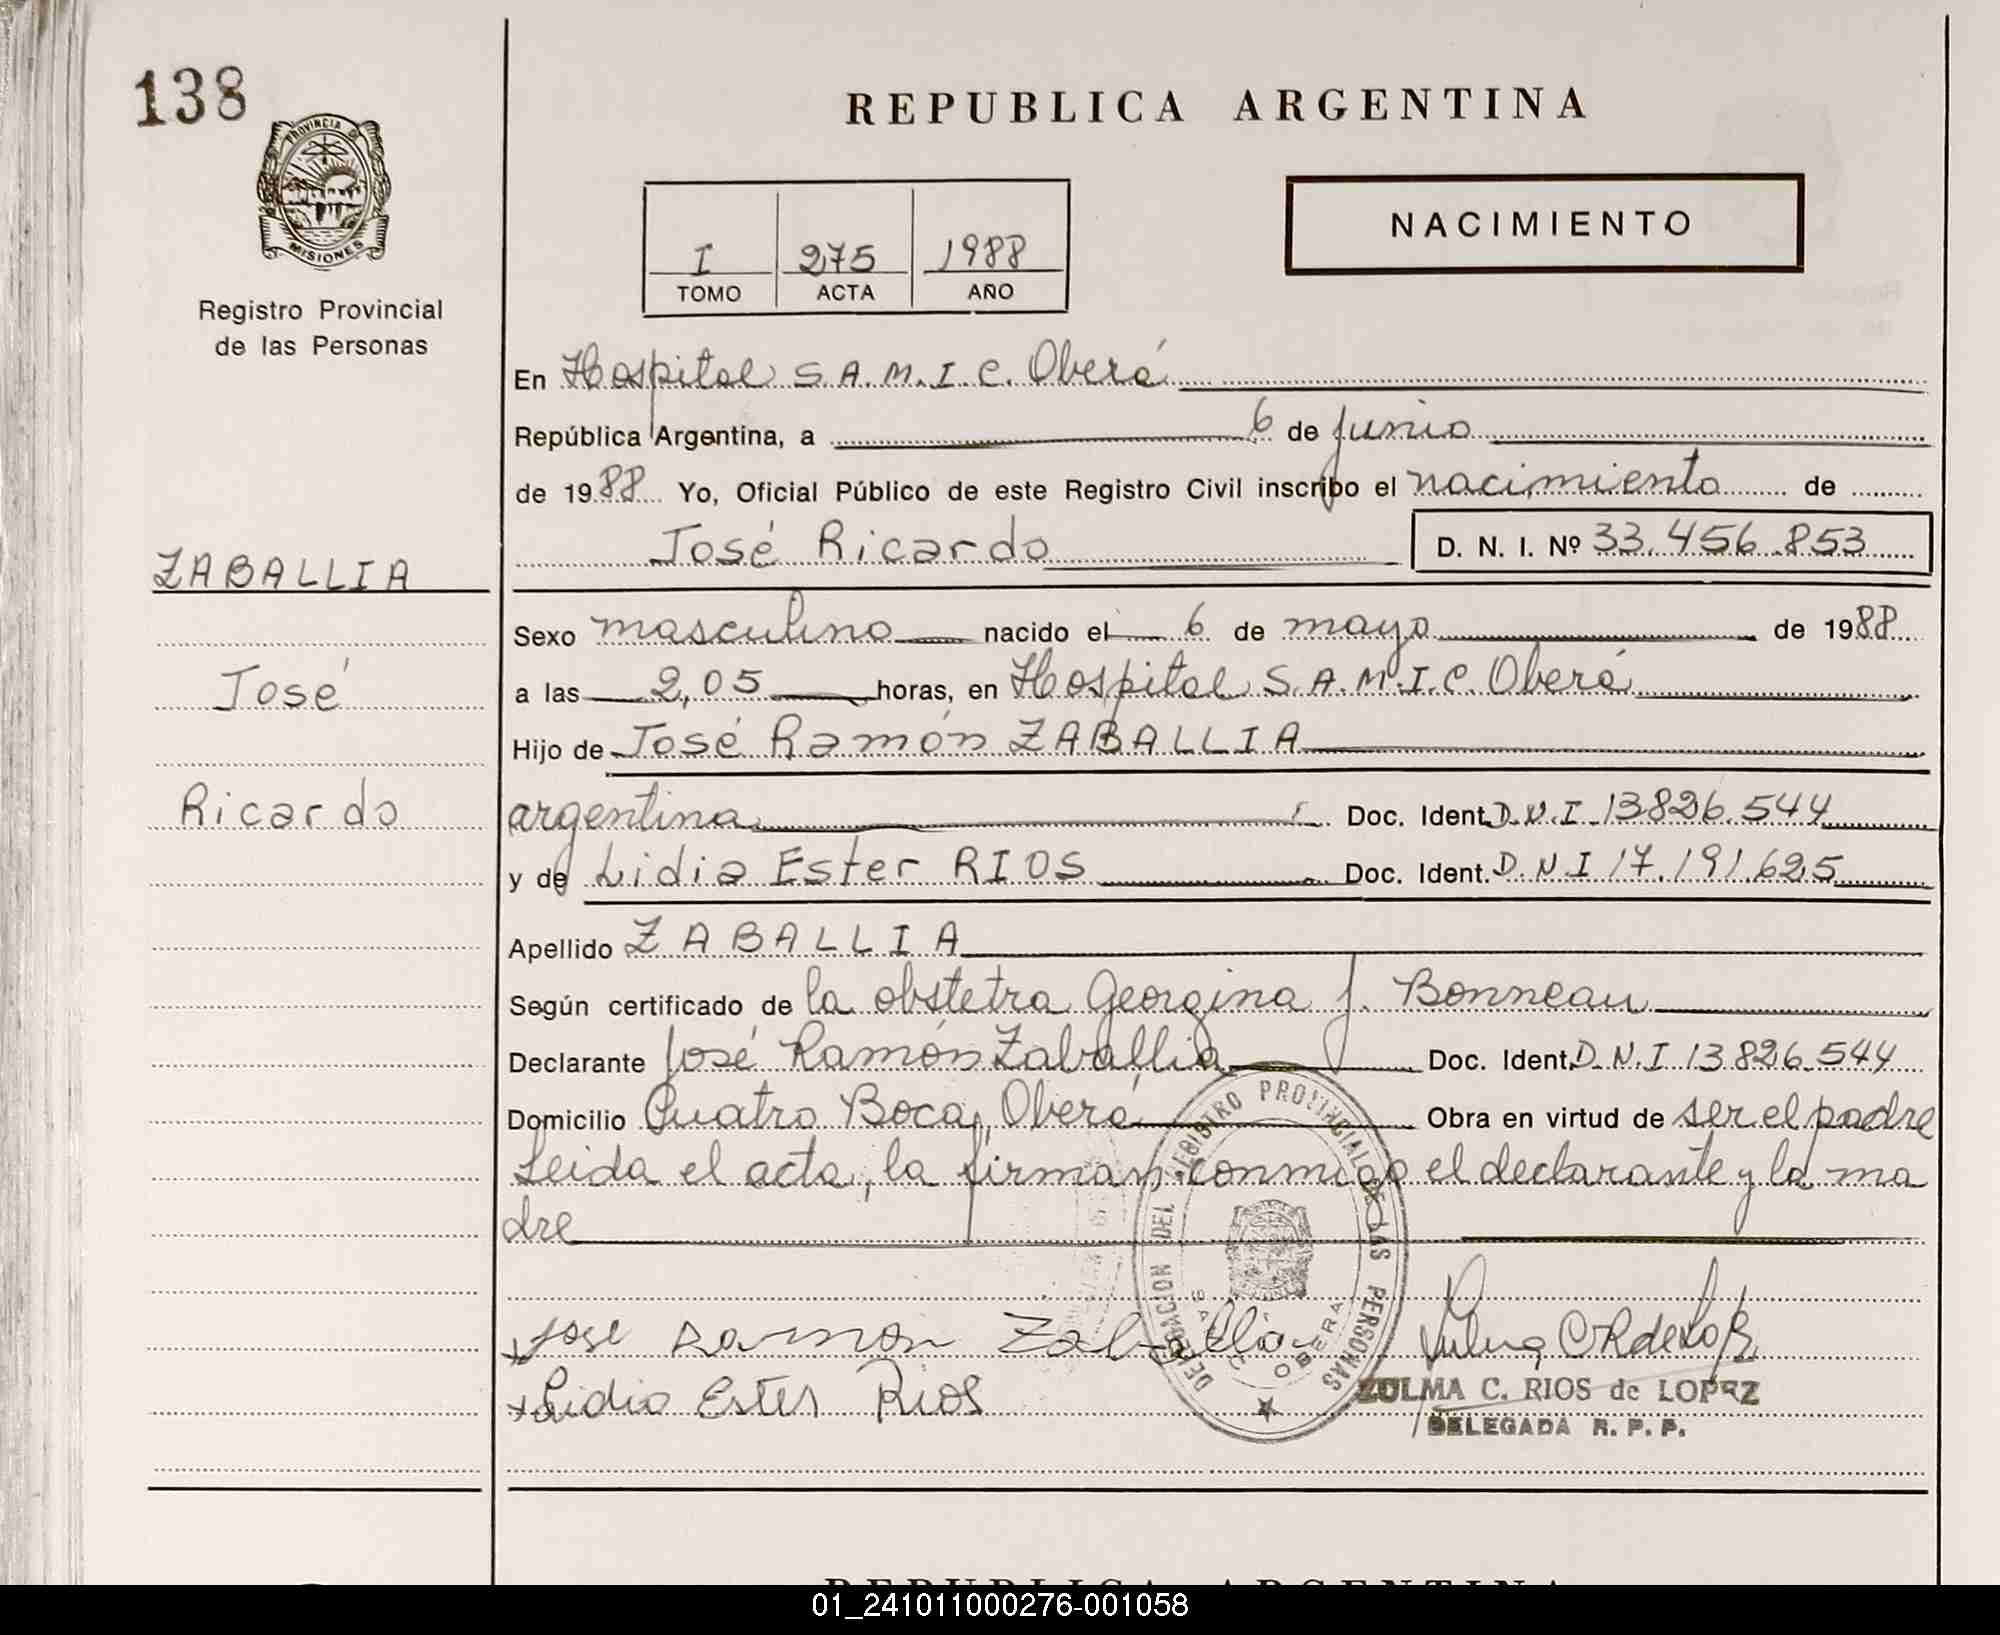 138
PROVINCIA DE
MISIONES
Registro Provincial
de las Personas
REPUBLICA ARGENTINA
I 275 1988
TOMO ACTA AÑO
NACIMIENTO
En Hospital S.A.M.I.C. Oberá
República Argentina, a 6 de junio
de 1988 Yo, Oficial Público de este Registro Civil inscribo el nacimiento de
José Ricardo D. N. I. Nº 33.456.853
ZABALLIA
José
Ricardo
Sexo masculino nacido el 6 de mayo de 1988
a las 2,05 horas, en Hospital S.A.M.I.C. Oberá
Hijo de José Ramón ZABALLIA
argentina Doc. Ident. D.N.I. 13826.544
y de Lidia Ester RIOS Doc. Ident. D.N.I 17.191.625
Apellido ZABALLIA
Según certificado de la obstetra Georgina J. Bonneau
Declarante José Ramón Zaballia Doc. Ident. D.N.I 13826.544
Domicilio Cuatro Boca, Oberá Obra en virtud de ser el padre
Leida el acta, la firman conmigo el declarante y la ma
dre
DELEGACION DEL REGISTRO PROVINCIAL DE LAS PERSONAS
OBERA
Jose Ramon Zaballia
Lidia Ester Rios
ZULMA C. RIOS de LOPEZ
DELEGADA R. P. P.
REPUBLICA ARGENTINA
01_241011000276-001058